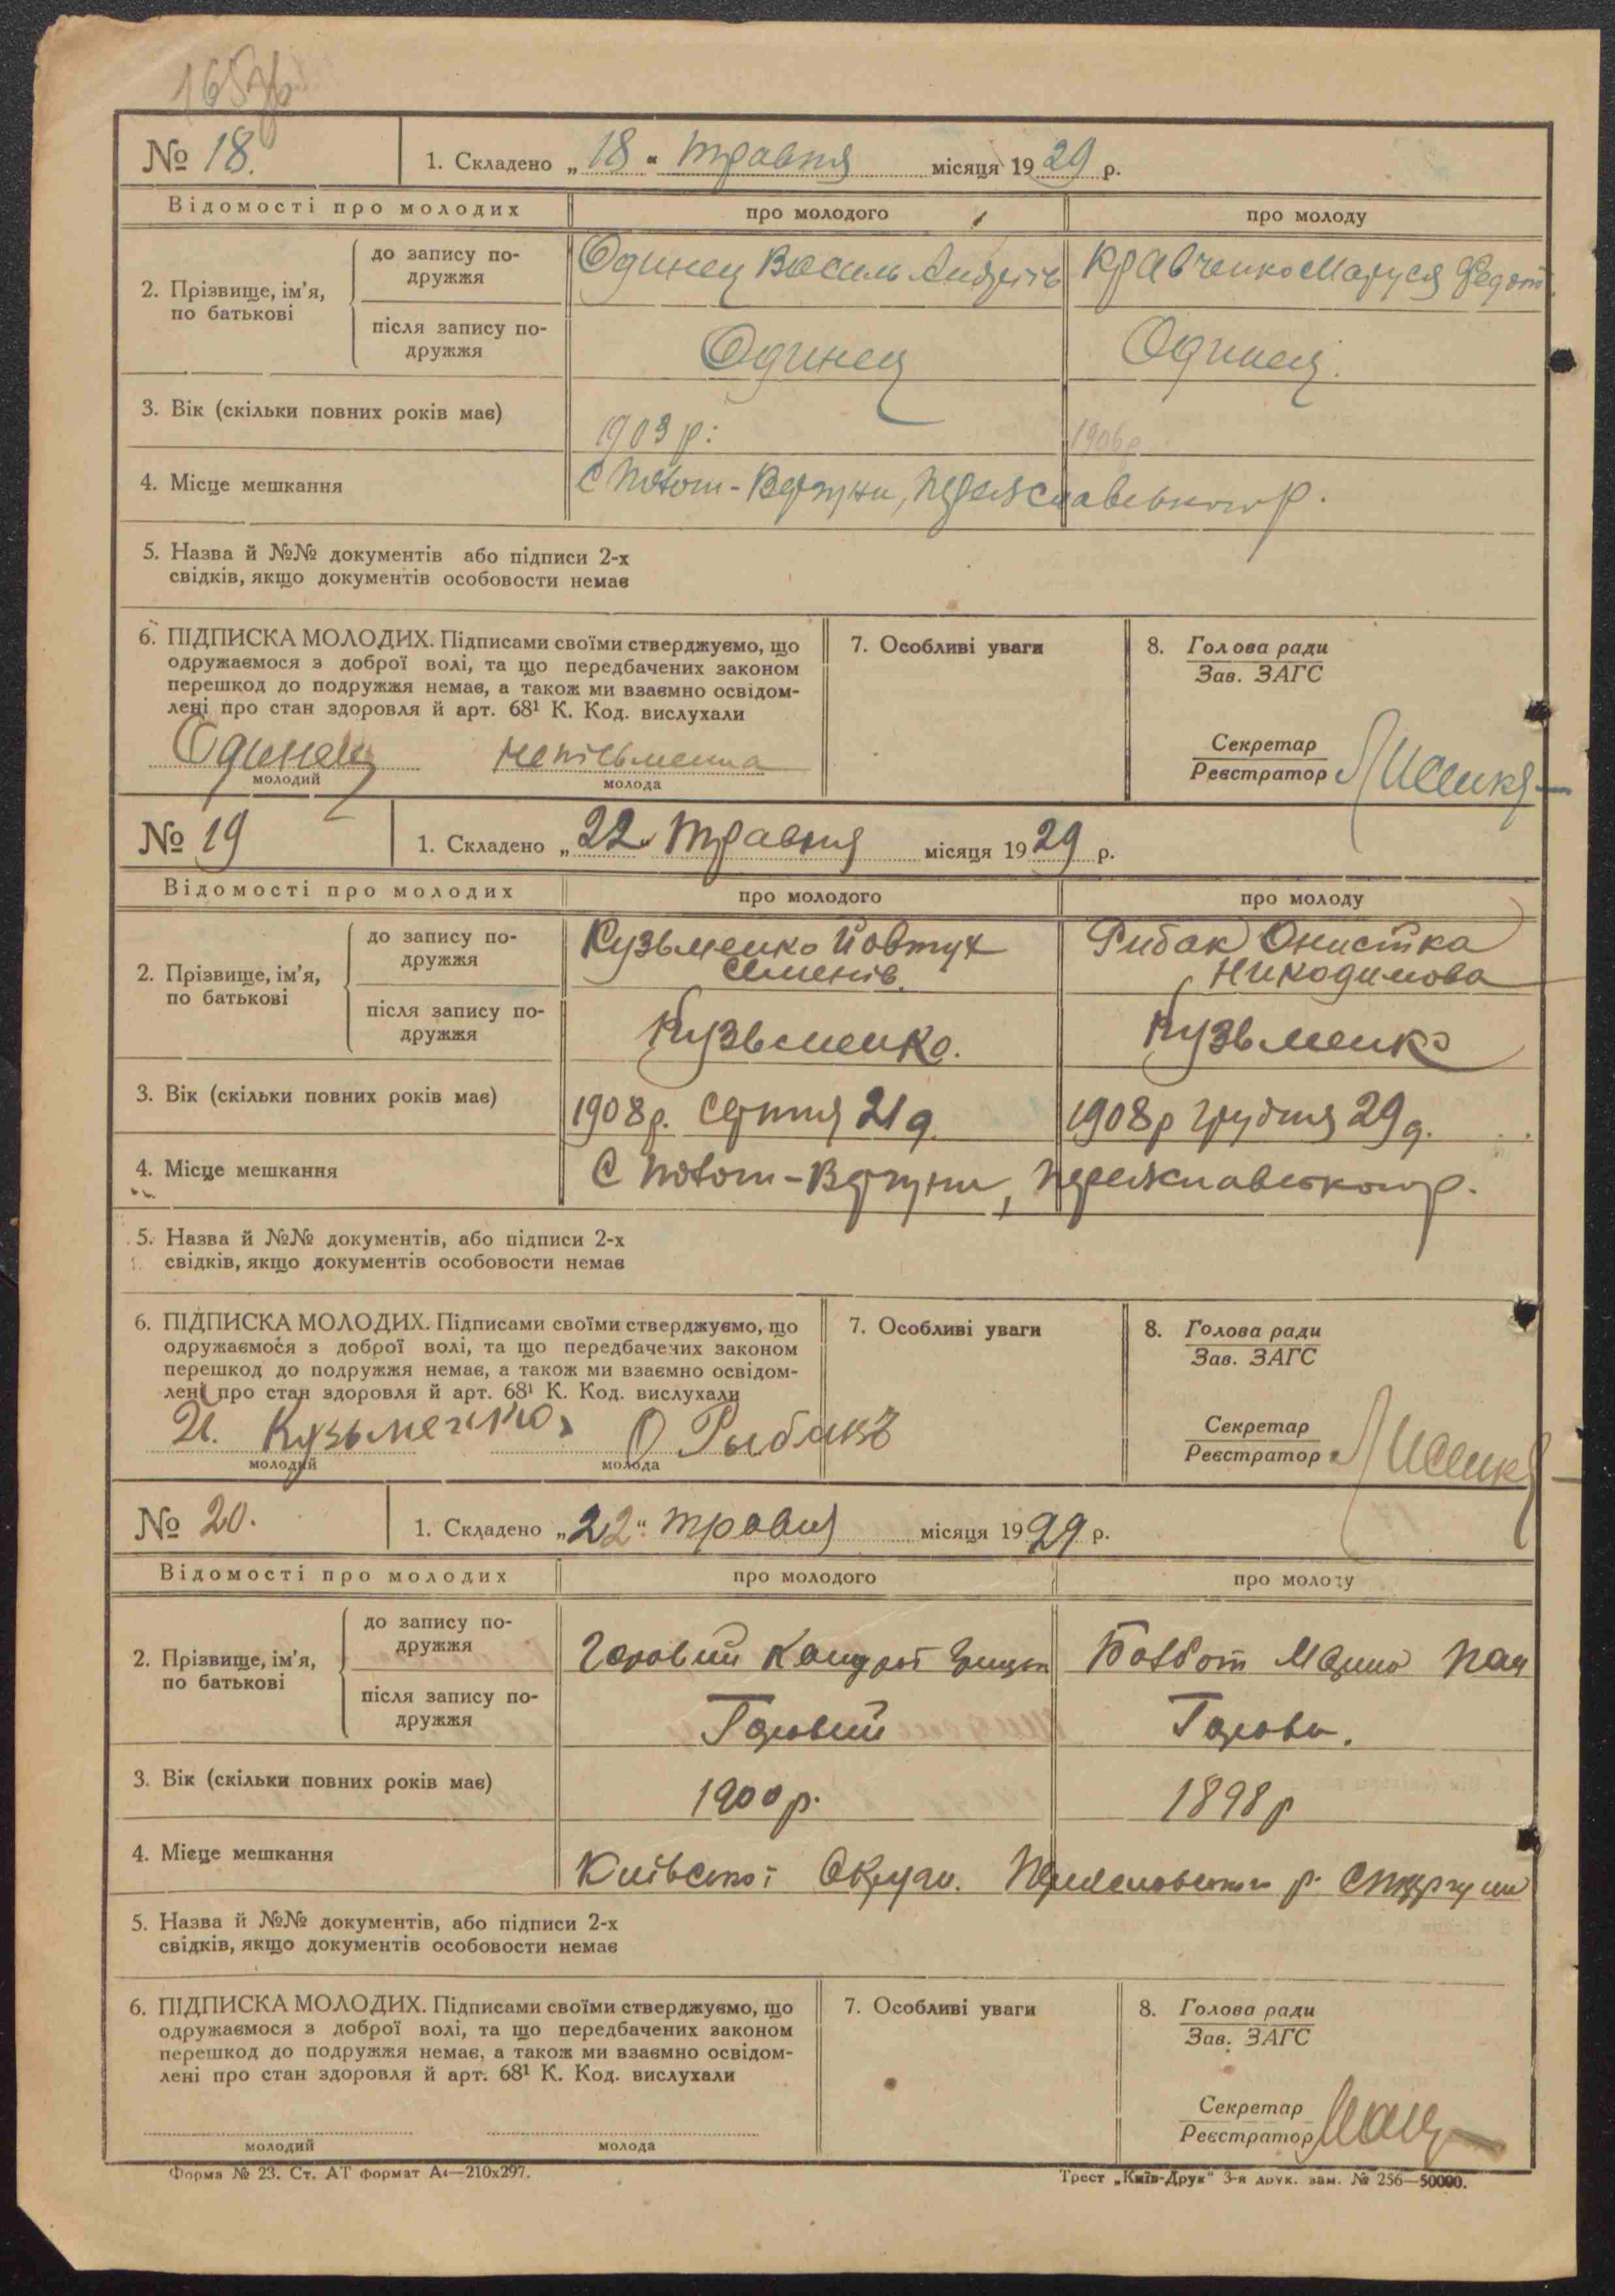 № 18.
1. Складено „18“ травня місяця 1929 р.
Відомості про молодих
про молодого
про молоду
2. Прізвище, ім’я, по батькові
до запису подружжя
Одинец Василь Андріїв
Кравченко Маруся Федот.
після запису подружжя
Одинец
Одинец.
3. Вік (скільки повних років має)
1903 р.
1906 р
4. Місце мешкання
С Потоки-Вергуни, Переяславського р.
5. Назва й №№ документів або підписи 2-х
свідків, якщо документів особовости немає
6. ПІДПИСКА МОЛОДИХ. Підписами своїми стверджуємо, що
одружаємося з доброї волі, та що передбачених законом
перешкод до подружжя немає, а також ми взаємно освідом-
лені про стан здоровля й арт. 68¹ К. Код. вислухали
Одинец
неписьменна
молодий
молода
7. Особливі уваги
8. Голова ради
Зав. ЗАГС
Секретар
Реєстратор
№ 19
1. Складено „22“ травня місяця 1929 р.
Відомості про молодих
про молодого
про молоду
2. Прізвище, ім’я, по батькові
до запису подружжя
Кузьменко Йовтух
Семенів.
Рибак Онистка
Никодимова
після запису подружжя
Кузьменко.
Кузьменко
3. Вік (скільки повних років має)
1908 р. серпня 21 д.
1908 р грудня 29 д.
4. Місце мешкання
С Потоки-Вергуни, Переяславського р.
5. Назва й №№ документів, або підписи 2-х
свідків, якщо документів особовости немає
6. ПІДПИСКА МОЛОДИХ. Підписами своїми стверджуємо, що
одружаємося з доброї волі, та що передбачених законом
перешкод до подружжя немає, а також ми взаємно освідом-
лені про стан здоровля й арт. 68¹ К. Код. вислухали
И. Кузьменко
О Рыбакъ
молодий
молода
7. Особливі уваги
8. Голова ради
Зав. ЗАГС
Секретар
Реєстратор
№ 20.
1. Складено „22“ травня місяця 1929 р.
Відомості про молодих
про молодого
про молоду
2. Прізвище, ім’я, по батькові
до запису подружжя
Горовий Кондрат Грицьк
Марина
після запису подружжя
Горовий
Горова.
3. Вік (скільки повних років має)
1900 р.
1898 р
4. Місце мешкання
Київської Округи. Переяславського р.
5. Назва й №№ документів, або підписи 2-х
свідків, якщо документів особовости немає
6. ПІДПИСКА МОЛОДИХ. Підписами своїми стверджуємо, що
одружаємося з доброї волі, та що передбачених законом
перешкод до подружжя немає, а також ми взаємно освідом-
лені про стан здоровля й арт. 68¹ К. Код. вислухали
молодий
молода
7. Особливі уваги
8. Голова ради
Зав. ЗАГС
Секретар
Реєстратор
Форма № 23. Ст. АТ формат А4—210х297.
Трест „Київ-Друк“ 3-я друк. зам. № 256—50000.